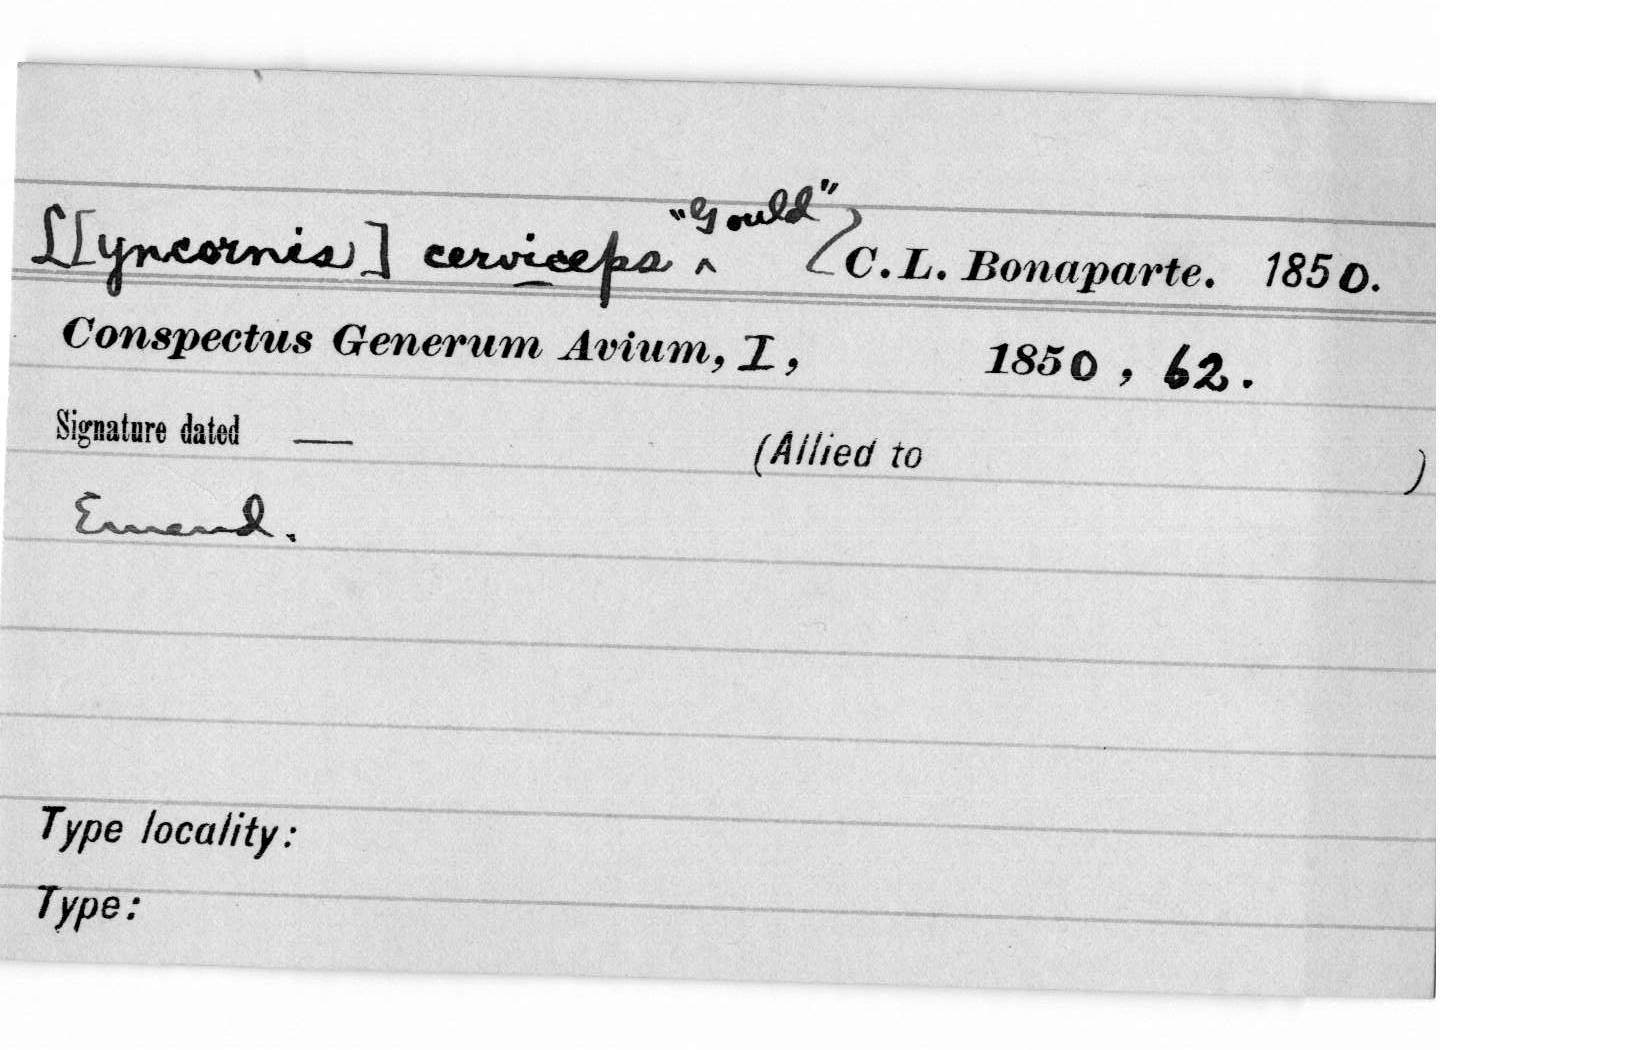 L[yncornis] cerviceps ^ "Gould" (C. L. Bonaparte. 1850.
Conspectus Generum Avium, I, 1850, 62.
Signature dated — (Allied to )
Emend.
Type locality:
Type: